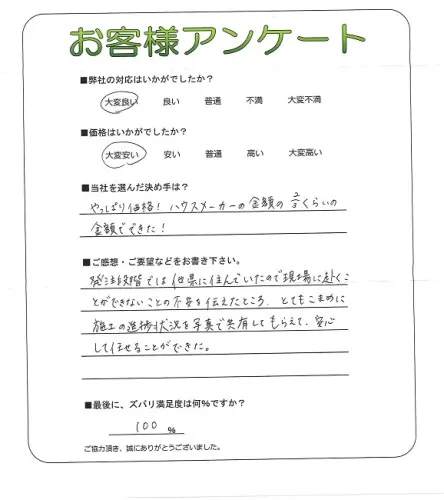 お客様アンケート
■弊社の対応はいかがでしたか?
大変良い 良い 普通 不満 大変不満
■価格はいかがでしたか?
大変安い 安い 普通 高い 大変高い
■当社を選んだ決め手は?
やっぱり価格! ハウスメーカーの金額の2/3くらいの
金額でできた!
■ご感想・ご要望などをお書き下さい。
発注段階では他県に住んでいたので現場に赴くこ
とができないことの不安を伝えたところ、とてもこまめに
施工の進捗状況を写真で共有してもらえて、安心
して任せることができた。
■最後に、ズバリ満足度は何%ですか?
100 %
ご協力頂き、誠にありがとうございました。